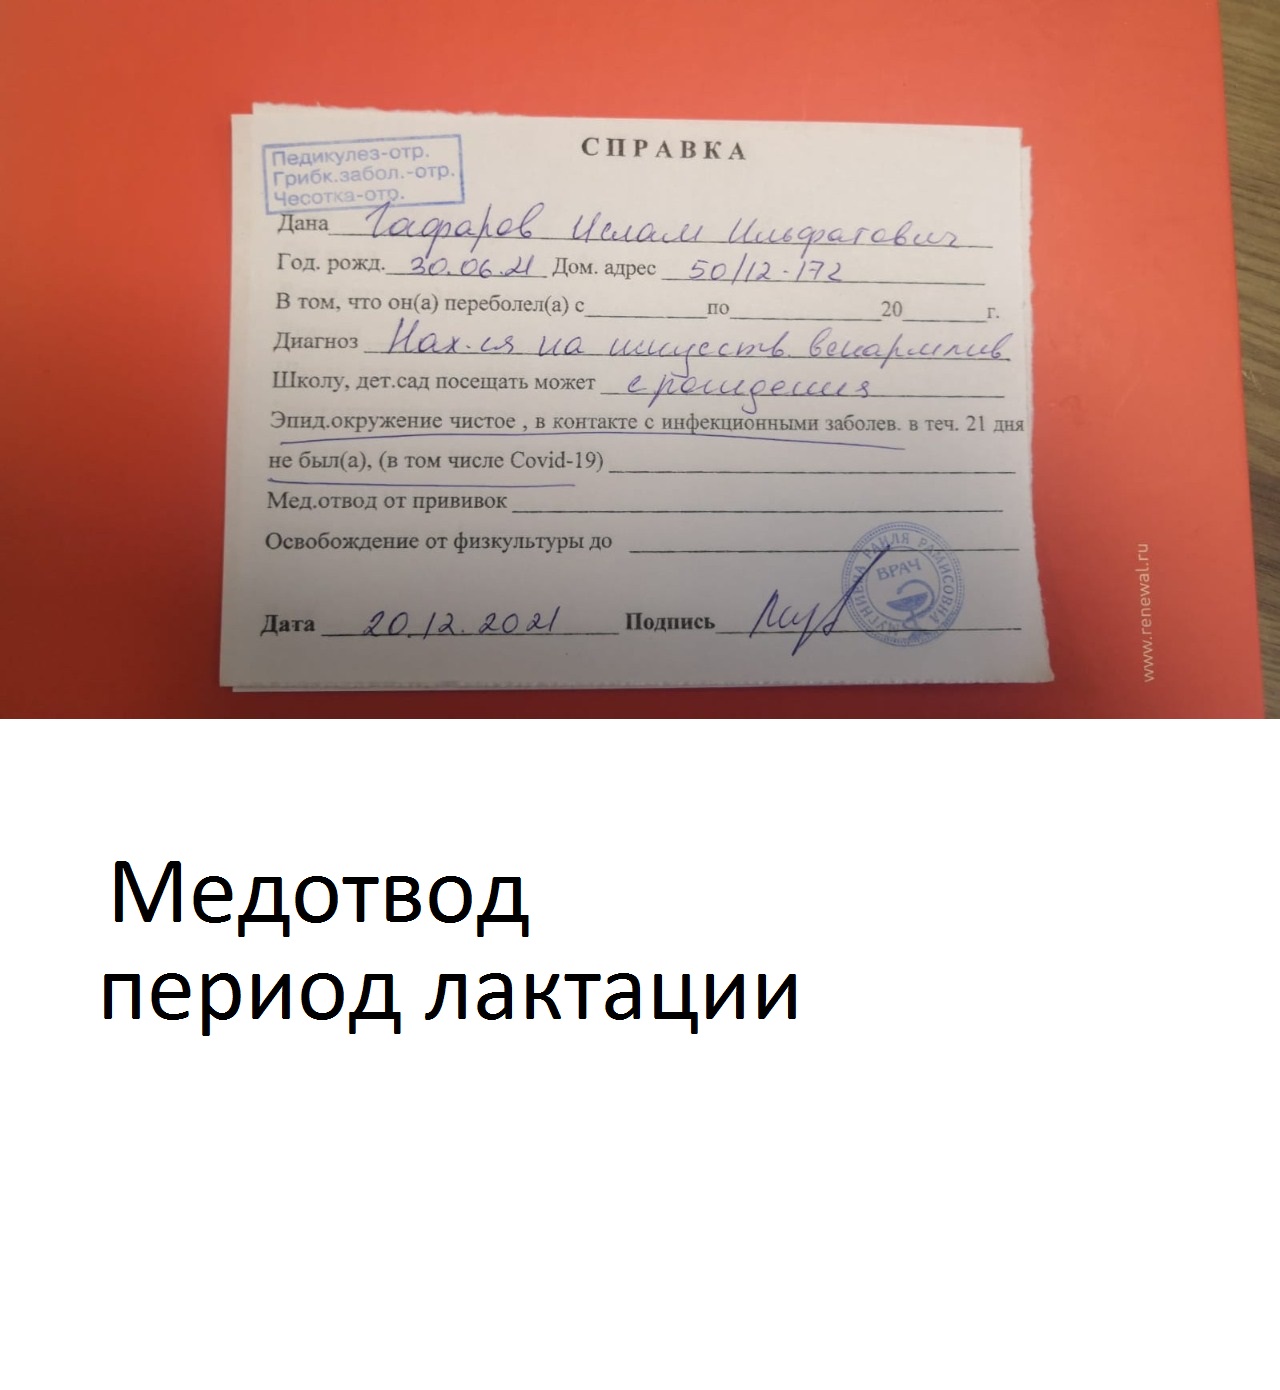 СПРАВКА
Педикулез-отр.
Грибк.забол.-отр.
Чесотка-отр.
Дана Гафаров Ислам Ильфатович
Год. рожд. 30.06.21 Дом. адрес 50/12-172
В том, что он(а) переболел(а) с по 20 г.
Диагноз Нах-ся на искусств. вскармлив
Школу, дет.сад посещать может с рождения
Эпид.окружение чистое , в контакте с инфекционными заболев. в теч. 21 дня
не был(а), (в том числе Covid-19)
Мед.отвод от прививок
Освобождение от физкультуры до
ВРАЧ
РАИЛЯ РАМИСОВНА
Дата 20.12.2021 Подпись
www.renewal.ru
Медотвод
период лактации